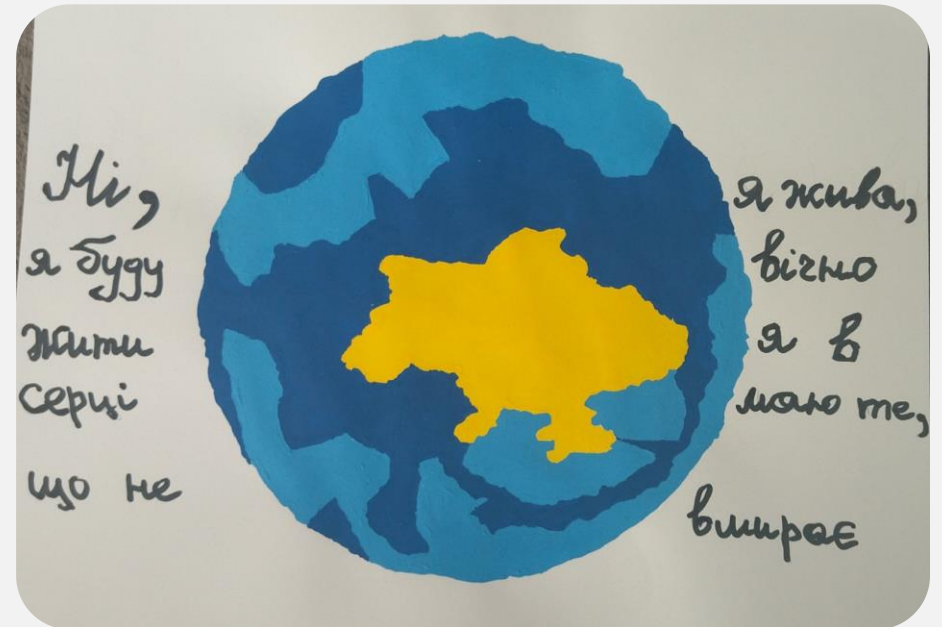 Ні, я жива,
я буду вічно
жити я в
серці маю те,
що не вмирає